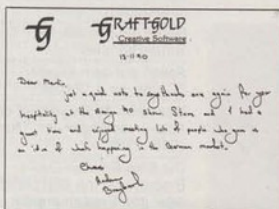 GRAFTGOLD
Creative Software
12-11-90
Dear Martin,
just a quick note to say thanks once again for your
hospitality at the Amiga 90 Show. Steve and I had a
great time and enjoyed meeting lots of people who gave us
an idea of what's happening in the German market.
Cheers